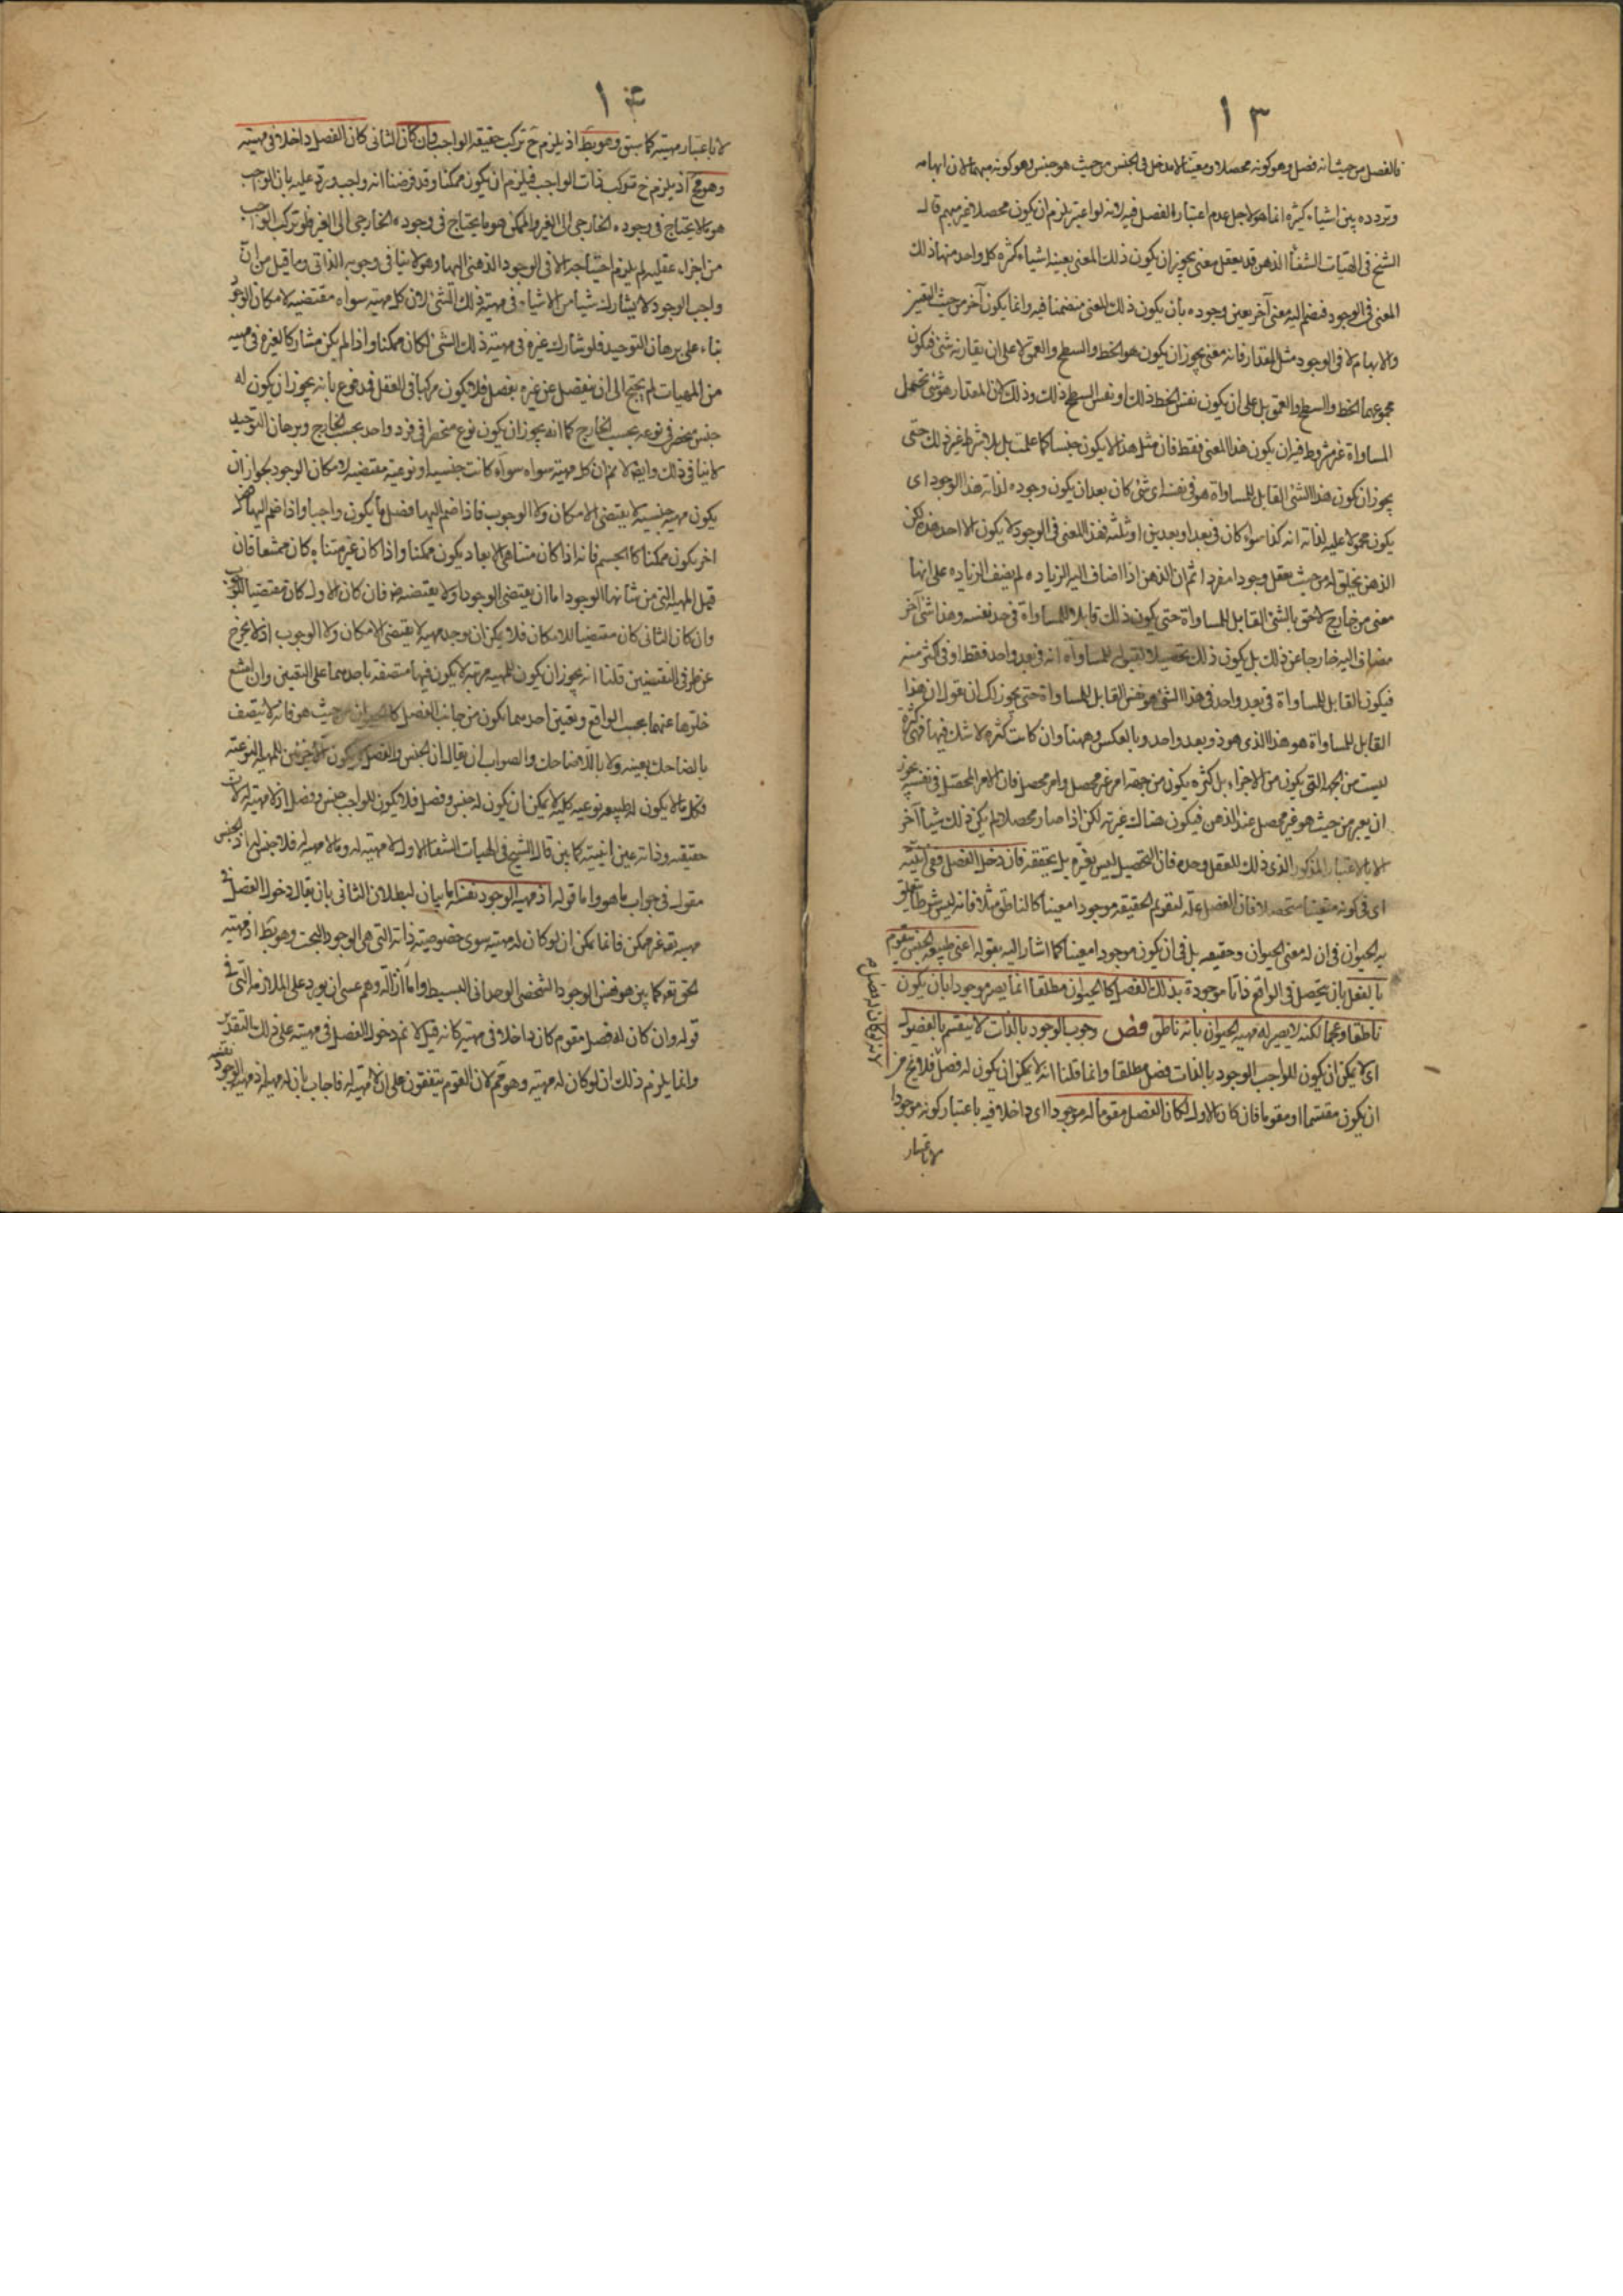 ١٣
فالفصل من حيث انه فصل وهو كونه محصلا ومعينا لا مدخل في الجنس من حيث هو جنس وهو كونه مبهما لان ابهامه
وتردده بين اشياء كثيره انما هو لاجل عدم اعتبار الفصل فيه لانه لو اعتبر يلزم ان يكون محصلا غير مبهم قال
الشيخ في الهيات الشفاء الذهن قد يعقل معنى يجوز ان يكون ذلك المعنى بعينه اشياء كثيره كل واحد منها ذلك
المعنى في الوجود فيضم اليه معنى آخر يعين وجوده بأن يكون ذلك المعنى متضمنا فيه وانما يكون آخر من حيث التعين
والابهام لا في الوجود مثل المقدار فانه معنى يجوز ان يكون هو الخط والسطح والعمق لا على ان يقارنه شئ فيكون
مجموعهما الخط والسطح والعمق بل على ان يكون نفس الخط ذلك او نفس السطح ذلك وذلك لان المقدار هو شئ يحتمل
المساواة غير مشروط فيه ان يكون هذا المعنى فقط فان مثل هذا لا يكون جنسا كما علمت بل بلا شرط غير ذلك حتى
يجوز ان يكون هذا الشئ القابل للمساواة هو في نفسه اى شئ كان بعد ان يكون وجوده لذاته هذا الوجود اى
يكون محمولا عليه لذاته انه كذا سواء كان في بعد او بعدين او ثلثه فهذا المعنى في الوجود لا يكون الا احد هذه لكن
الذهن يخلق له من حيث يعقل وجودا مفردا ثم ان الذهن اذا اضاف اليه الزيادة لم يضف الزيادة على انها
معنى من خارج لاحق بالشئ القابل للمساواة حتى يكون ذلك قابلا للمساواة في حد نفسه وهذا شئ آخر
مضاف اليه خارجا عن ذلك بل يكون ذلك تحصيلا لقبوله للمساواة انه في بعد واحد فقط او في اكثر منه
فيكون القابل للمساواة في بعد واحد في هذا الشئ هو نفس القابل للمساواة حتى يجوز لك ان تقول ان هذا
القابل للمساواة هو هذا الذى هو ذو بعد واحد وبالعكس وههنا وان كانت كثره لا شك فيها فهى كثرة
ليست من الجهه التى يكون من الاجزاء بل كثره يكون من جهه امر غير محصل وامر محصل فان الامر المحصل في نفسه يجوز
ان يعتبر من حيث هو غير محصل عند الذهن فيكون هناك غيريه لكن اذا صار محصلا لم يكن ذلك شيأ آخر
الا بالاعتبار المذكور الذى ذلك للعقل وحده فان التحصيل ليس يغيره بل يحققه فان دخل الفصل ففى انيته
اى في كونه متعينا متحصلا فان الفصل علة لتقويم الحقيقه موجودا معينا كالناطق مثلا فانه ليس شرطا يتعلق
به الحيوان في ان له معنى الحيوان وحقيقه بل في ان يكون موجودا معينا كما اشار اليه بقوله اعنى طبيعة الجنس يتقوم
بالفعل بان يتحصل في الواقع ذاتا موجودة بذلك الفصل كالحيوان مطلقا انما يصير موجودا بان يكون
ناطقا او عجما لكنه لا يصير له مهية الحيوان بانه ناطق فص وجوب الوجود بالذات لا ينقسم بالفصول
اى لا يمكن ان يكون للواجب الوجود بالذات فصل مطلقا وانما قلنا انه لا يمكن ان يكون له فصل فلانه لا يخ من
ان يكون مقسما او مقوما فان كان الاول لكان الفصل مقوما له موجودا اى داخلا فيه باعتبار كونه موجودا
لانه لو كان له فصل
لا باعتبار
١٤
لا باعتبار مهيته كما سبق وهو بط اذ يلزم ح تركب حقيقه الواجب وان كان الثانى كان الفصل داخلا في مهيته
وهو مح اذ يلزم ح تركب ذات الواجب فيلزم ان يكون ممكنا وقد فرضنا انه واجب ويرد عليه بان الواجب
هو ما لا يحتاج في وجوده الخارجى الى الغير والممكن هو ما يحتاج في وجوده الخارجى الى الغير فلو تركب الواجب
من اجزاء عقليه لم يلزم احتياجه الا في الوجود الذهنى اليها وهو لا ينافى وجوبه الذاتى وما قيل من ان
واجب الوجود لا يشارك شيأ من الاشياء في مهية ذلك الشئ لان كل مهيه سواه مقتضيه لامكان الوجود
بناء على برهان التوحيد فلو شارك غيره في مهية ذلك الشئ لكان ممكنا واذا لم يكن مشاركا لغيره في مهيه
من المهيات لم يحتج الى ان ينفصل عن غيره بفصل فلا يكون مركبا في العقل فمدفوع بانه يجوز ان يكون له
جنس منحصر في نوعه بحسب الخارج كما انه يجوز ان يكون نوع منحصرا في فرد واحد بحسب الخارج وبرهان التوحيد
لا ينافى ذلك وايضا لا نم ان كل مهيه سواه سواء كانت جنسيه او نوعيه مقتضيه لامكان الوجود بجواز ان
يكون مهيه جنسيه لا يقتضى الامكان ولا الوجوب فاذا ضم اليها فصل ما يكون واجبا واذا ضم اليها فصل
اخر يكون ممكنا كالجسم فانه اذا كان متناهى الابعاد يكون ممكنا واذا كان غير متناه كان ممتنعا فان
قيل المهية التى من شانها الوجود اما ان يقتضى الوجود او لا يقتضيه فان كان الاول كان مقتضيا للوجوب
وان كان الثانى كان مقتضيا للامكان فلا يمكن ان يوجد مهيه لا يقتضى الامكان ولا الوجوب اذ لا يخرج
عن طرفى النقيضين قلنا انه يجوز ان يكون للمهيه مرتبه لا يكون فيها متصفه باحدهما على التعين وان امتنع
خلوها عنهما بحسب الواقع وتعين احدهما يكون من جانب الفصل كالحيوان من حيث هو فانه لا يتصف
بالضاحك بعينه ولا باللاضاحك والصواب ان يقال ان الجنس والفصل يكون للمهيه النوعيه
فكل ما لا يكون له طبيعه نوعيه كليه لا يمكن ان يكون له جنس وفصل فلا يكون للواجب جنس وفصل اذ لا مهيه له لان
حقيقته وذاته عين انيته كما بين قال الشيخ في الهيات الشفا الاول لا مهيه له وما لا مهيه له فلا جنس له اذ الجنس
مقول في جواب ما هو واما قوله اذ مهيه الوجود نفسه اما بيان لبطلان الثانى بان يقال دخول الفصل في
مهيته غير ممكن فانما يمكن ان لو كان له مهيه سوى خصوصيه ذاته التى هى الوجود البحت وهو بط اذ مهيته
كما بين هو نفس الوجود الشخصى الوحدانى البسيط واما ازالة وهم عسى ان يورد على الملازمه التى في
قوله وان كان له فصل مقوم كان داخلا في مهيته كانه قيل لا نم دخول الفصل في مهيته على ذلك التقدير
وانما يلزم ذلك ان لو كان له مهيه وهو مم لان القوم يتفقون على ان لا مهيه له فاجاب بان له مهيه اذ مهيه الوجود نفسه